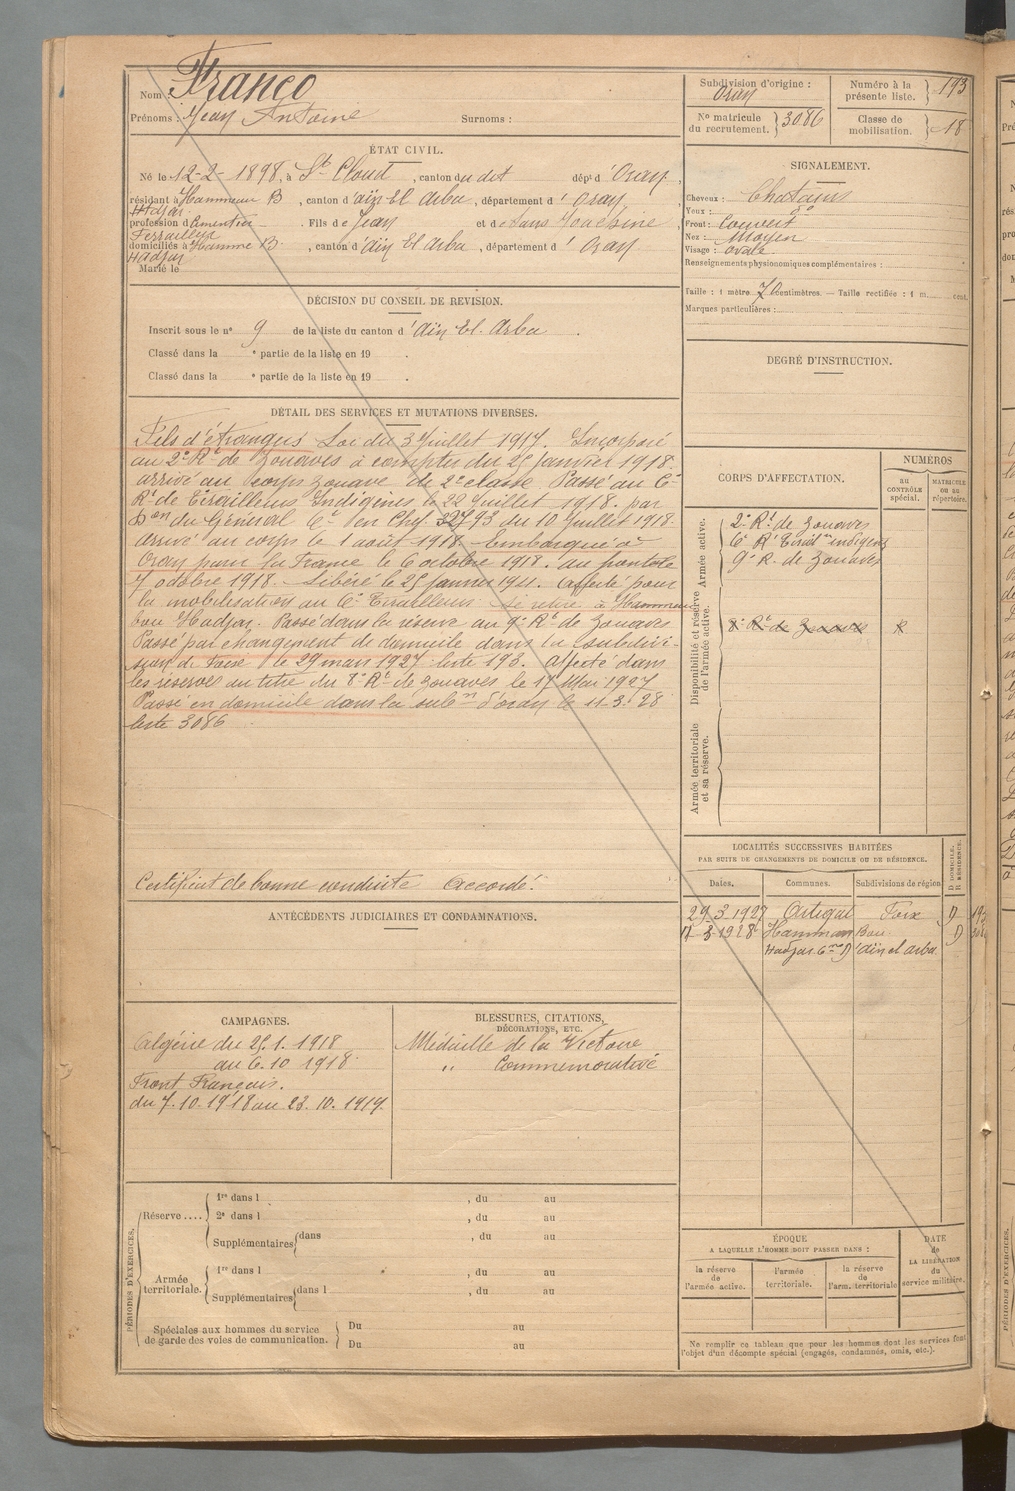 Nom : Franco
Prénoms : Jean Antoine Surnoms :
ÉTAT CIVIL.
Né le 12-2-1898, à St Cloud, canton du dit, dépt d'Oran,
résidant à Hammam B, canton d'aïn El Arba, département d'Oran,
Hadjar
profession d Fils de Jean et de
domiciliés à Hamme B. , canton d'aïn El Arba, département d'Oran
Hadjar
Marié le
DÉCISION DU CONSEIL DE REVISION.
Inscrit sous le n° 9 de la liste du canton d'Aïn El. Arba .
Classé dans la e partie de la liste en 19 .
Classé dans la e partie de la liste en 19 .
DÉTAIL DES SERVICES ET MUTATIONS DIVERSES.
Fils d'étrangers Loi du 3 Juillet 1917. Incorporé
au 2e Rt de Zouaves à compter du 25 Janvier 1918.
arrivé au corps zouave de 2e classe Passé au 6e
Rt de Tirailleurs Indigènes le 22 Juillet 1918. par
Don du Général Ct en Chef 32793 du 10 Juillet 1918.
arrivé au corps le 1 août 1918. Embarqué à
Oran pour la France le 6 octobre 1918. au front le
7 octobre 1918. Libéré le 25 janvier 1921. Affecté pour
la mobilisation au 6e Tirailleurs se retire à Hammam
bou Hadjar. Passé dans la réserve au 9e Rt de Zouaves.
Passé par changement de domicile dans la subdivi-
sion de Foix le 29 mars 1927 liste 193. affecté dans
les réserves au titre du 8e Rt de Zouaves le 17 Mai 1927
Passé en domicile dans la subon d'Oran le 11-3-28
liste 3086
Certificat de bonne conduite Accordé.
ANTÉCÉDENTS JUDICIAIRES ET CONDAMNATIONS.
CAMPAGNES.
Algérie du 25.1.1918
au 6.10 1918
Front Français.
du 7.10.1918 au 23.10.1919.
BLESSURES, CITATIONS,
DÉCORATIONS, ETC.
Médaille de la Victoire
" Commemorative
PÉRIODES D'EXERCICES.
Réserve....
1re dans l , du au
2e dans l , du au
Supplémentaires dans , du au
Armée territoriale.
1re dans l , du au
Supplémentaires dans l , du au
Spéciales aux hommes du service
de garde des voies de communication.
Du au
Du au
Subdivision d'origine :
Oran
Numéro à la
présente liste. 193
N° matricule
du recrutement. 3086
Classe de
mobilisation. 18
SIGNALEMENT.
Cheveux : Chatains
Yeux : do
Front : Couvert
Nez : Moyen
Visage : ovale
Renseignements physionomiques complémentaires :
Taille : 1 mètre 70 centimètres. — Taille rectifiée : 1 m. cent.
Marques particulières :
DEGRÉ D'INSTRUCTION.
CORPS D'AFFECTATION.
NUMÉROS
au
CONTRÔLE
spécial.
MATRICULE
ou au
répertoire.
Armée active.
2e Rt de Zouaves
6e Rt Tirailrs indigènes
9e R. de Zouaves
Disponibilité et réserve
de l'armée active.
8e Rt de Zouaves R
Armée territoriale
et sa réserve.
LOCALITÉS SUCCESSIVES HABITÉES
PAR SUITE DE CHANGEMENTS DE DOMICILE OU DE RÉSIDENCE.
Dates. Communes. Subdivisions de région D DOMICILE. R RÉSIDENCE.
29 3 1927 Artigat Foix D 193
11 3 1928 Hammam Bou D 3086
Hadjar Cne D'aïn el arba
ÉPOQUE
A LAQUELLE L'HOMME DOIT PASSER DANS :
la réserve
de
l'armée active.
l'armée
territoriale.
la réserve
de
l'arm. territoriale
DATE
de
LA LIBÉRATION
du
service militaire.
Ne remplir ce tableau que pour les hommes dont les services font
l'objet d'un décompte spécial (engagés, condamnés, omis, etc.).